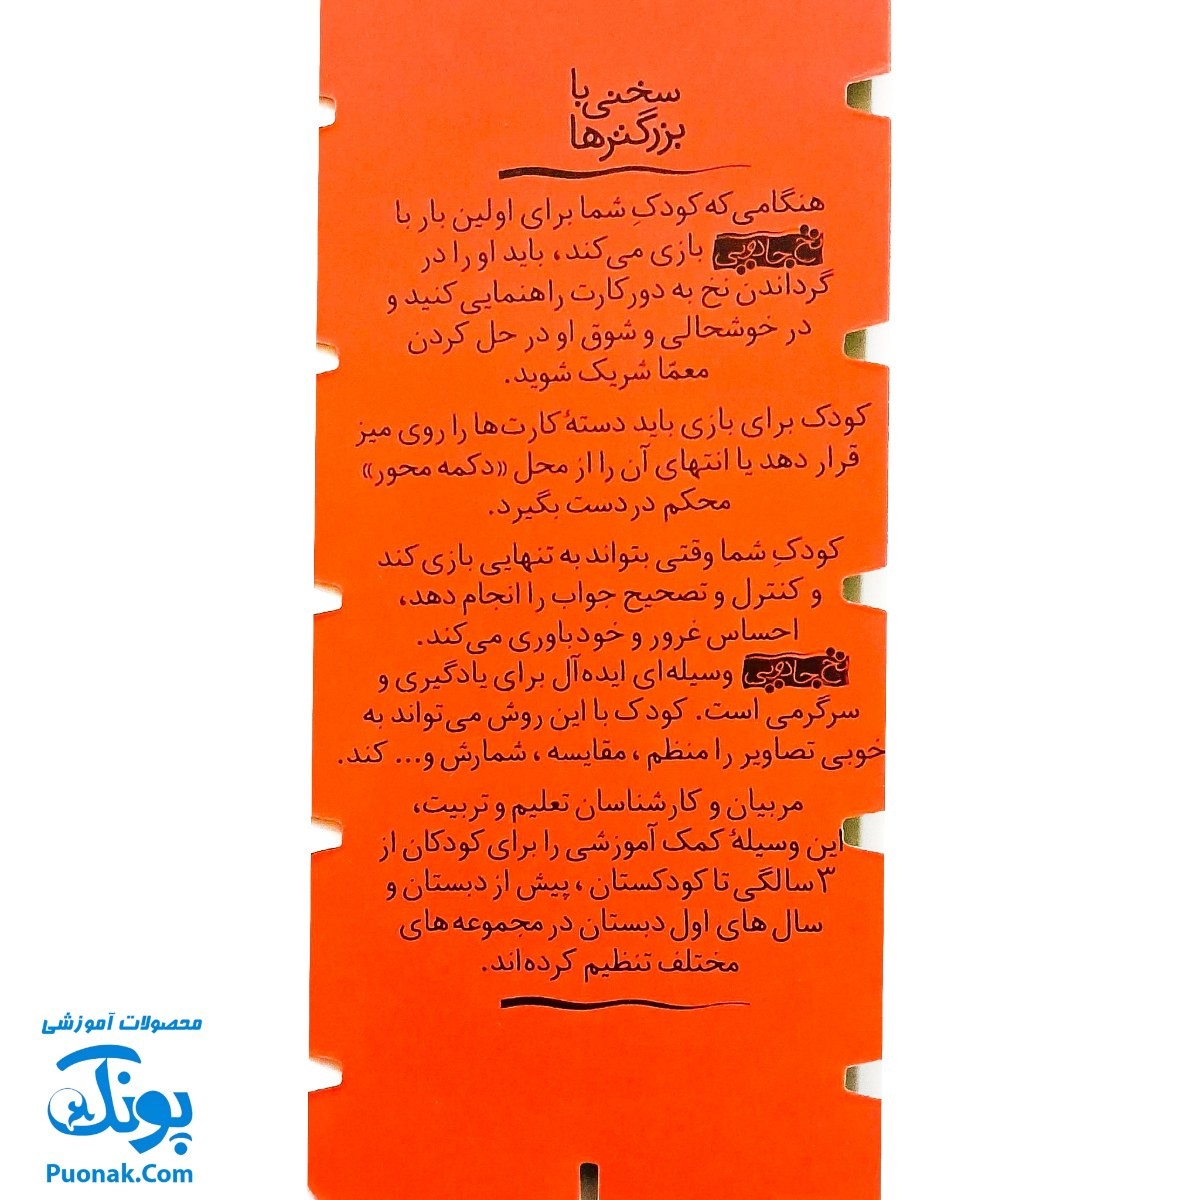 سخنی با
بزرگترها
هنگامی‌که کودکِ شما برای اولین بار با
نخ جادویی بازی می‌کند، باید او را در
گرداندن نخ به دور کارت راهنمایی کنید و
در خوشحالی و شوق او در حل کردن
معمّا شریک شوید.
کودک برای بازی باید دستهٔ کارت‌ها را روی میز
قرار دهد یا انتهای آن را از محل «دکمه محور»
محکم در دست بگیرد.
کودکِ شما وقتی بتواند به تنهایی بازی کند
و کنترل و تصحیح جواب را انجام دهد،
احساس غرور و خودباوری می‌کند.
نخ جادویی وسیله‌ای ایده‌آل برای یادگیری و
سرگرمی است. کودک با این روش می‌تواند به
خوبی تصاویر را منظم ، مقایسه ، شمارش و... کند.
مربیان و کارشناسان تعلیم و تربیت،
این وسیلهٔ کمک آموزشی را برای کودکان از
۳ سالگی تا کودکستان ، پیش از دبستان و
سال های اول دبستان در مجموعه های
مختلف تنظیم کرده‌اند.
محصولات آموزشی
پونک
Puonak.Com